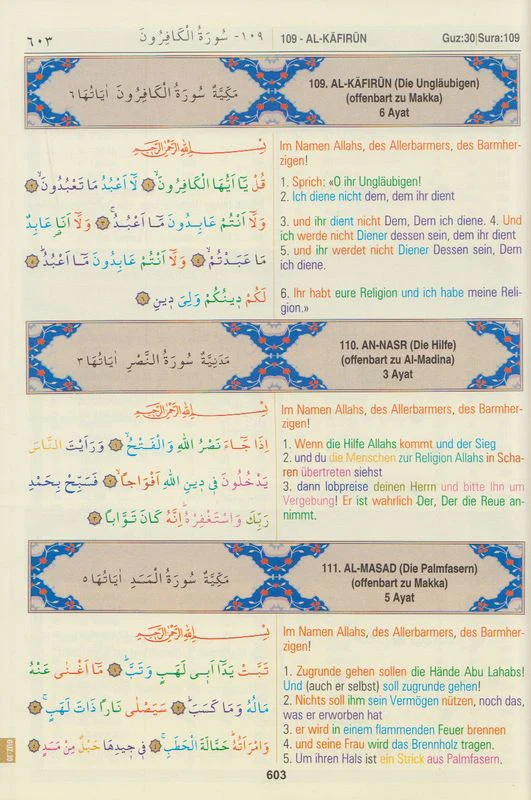 ٦٠٣
١٠٩- سُورَةُ الْكَافِرُونَ
109 - AL-KĀFIRŪN
Guz:30|Sura:109
مَكِّيَّةٌ سُورَةُ الْكَافِرُونَ اٰيَاتُهَا ٦
109. AL-KĀFIRŪN (Die Ungläubigen)
(offenbart zu Makka)
6 Ayat
بِسْمِ اللّٰهِ الرَّحْمٰنِ الرَّحِيمِ
قُلْ يَٓا اَيُّهَا الْكَافِرُونَۙ ١ لَٓا اَعْبُدُ مَا تَعْبُدُونَۙ ٢
وَلَٓا اَنْتُمْ عَابِدُونَ مَٓا اَعْبُدُۚ ٣ وَلَٓا اَنَا۬ عَابِدٌ
مَا عَبَدْتُمْۙ ٤ وَلَٓا اَنْتُمْ عَابِدُونَ مَٓا اَعْبُدُۜ ٥
لَكُمْ دِينُكُمْ وَلِيَ دِينِ ٦
Im Namen Allahs, des Allerbarmers, des Barmher-
zigen!
1. Sprich: «O ihr Ungläubigen!
2. Ich diene nicht dem, dem ihr dient
3. und ihr dient nicht Dem, Dem ich diene. 4. Und
ich werde nicht Diener dessen sein, dem ihr dient
5. und ihr werdet nicht Diener Dessen sein, Dem
ich diene.
6. Ihr habt eure Religion und ich habe meine Reli-
gion.»
مَدَنِيَّةٌ سُورَةُ النَّصْرِ اٰيَاتُهَا ٣
110. AN-NASR (Die Hilfe)
(offenbart zu Al-Madina)
3 Ayat
بِسْمِ اللّٰهِ الرَّحْمٰنِ الرَّحِيمِ
اِذَا جَٓاءَ نَصْرُ اللّٰهِ وَالْفَتْحُۙ ١ وَرَاَيْتَ النَّاسَ
يَدْخُلُونَ فِي دِينِ اللّٰهِ اَفْوَاجًاۙ ٢ فَسَبِّحْ بِحَمْدِ
رَبِّكَ وَاسْتَغْفِرْهُۜ اِنَّهُ كَانَ تَوَّابًا ٣
Im Namen Allahs, des Allerbarmers, des Barmher-
zigen!
1. Wenn die Hilfe Allahs kommt und der Sieg
2. und du die Menschen zur Religion Allahs in Scha-
ren übertreten siehst
3. dann lobpreise deinen Herrn und bitte Ihn um
Vergebung! Er ist wahrlich Der, Der die Reue an-
nimmt.
مَكِّيَّةٌ سُورَةُ الْمَسَدِ اٰيَاتُهَا ٥
111. AL-MASAD (Die Palmfasern)
(offenbart zu Makka)
5 Ayat
بِسْمِ اللّٰهِ الرَّحْمٰنِ الرَّحِيمِ
تَبَّتْ يَدَٓا اَبِي لَهَبٍ وَتَبَّۜ ١ مَٓا اَغْنٰى عَنْهُ
مَالُهُ وَمَا كَسَبَۜ ٢ سَيَصْلٰى نَارًا ذَاتَ لَهَبٍۚ ٣
وَامْرَاَتُهُۜ حَمَّالَةَ الْحَطَبِۚ ٤ فِي جِيدِهَا حَبْلٌ مِنْ مَسَدٍ ٥
Im Namen Allahs, des Allerbarmers, des Barmher-
zigen!
1. Zugrunde gehen sollen die Hände Abu Lahabs!
Und (auch er selbst) soll zugrunde gehen!
2. Nichts soll ihm sein Vermögen nützen, noch das,
was er erworben hat
3. er wird in einem flammenden Feuer brennen
4. und seine Frau wird das Brennholz tragen.
5. Um ihren Hals ist ein Strick aus Palmfasern.
GUZ.30
603